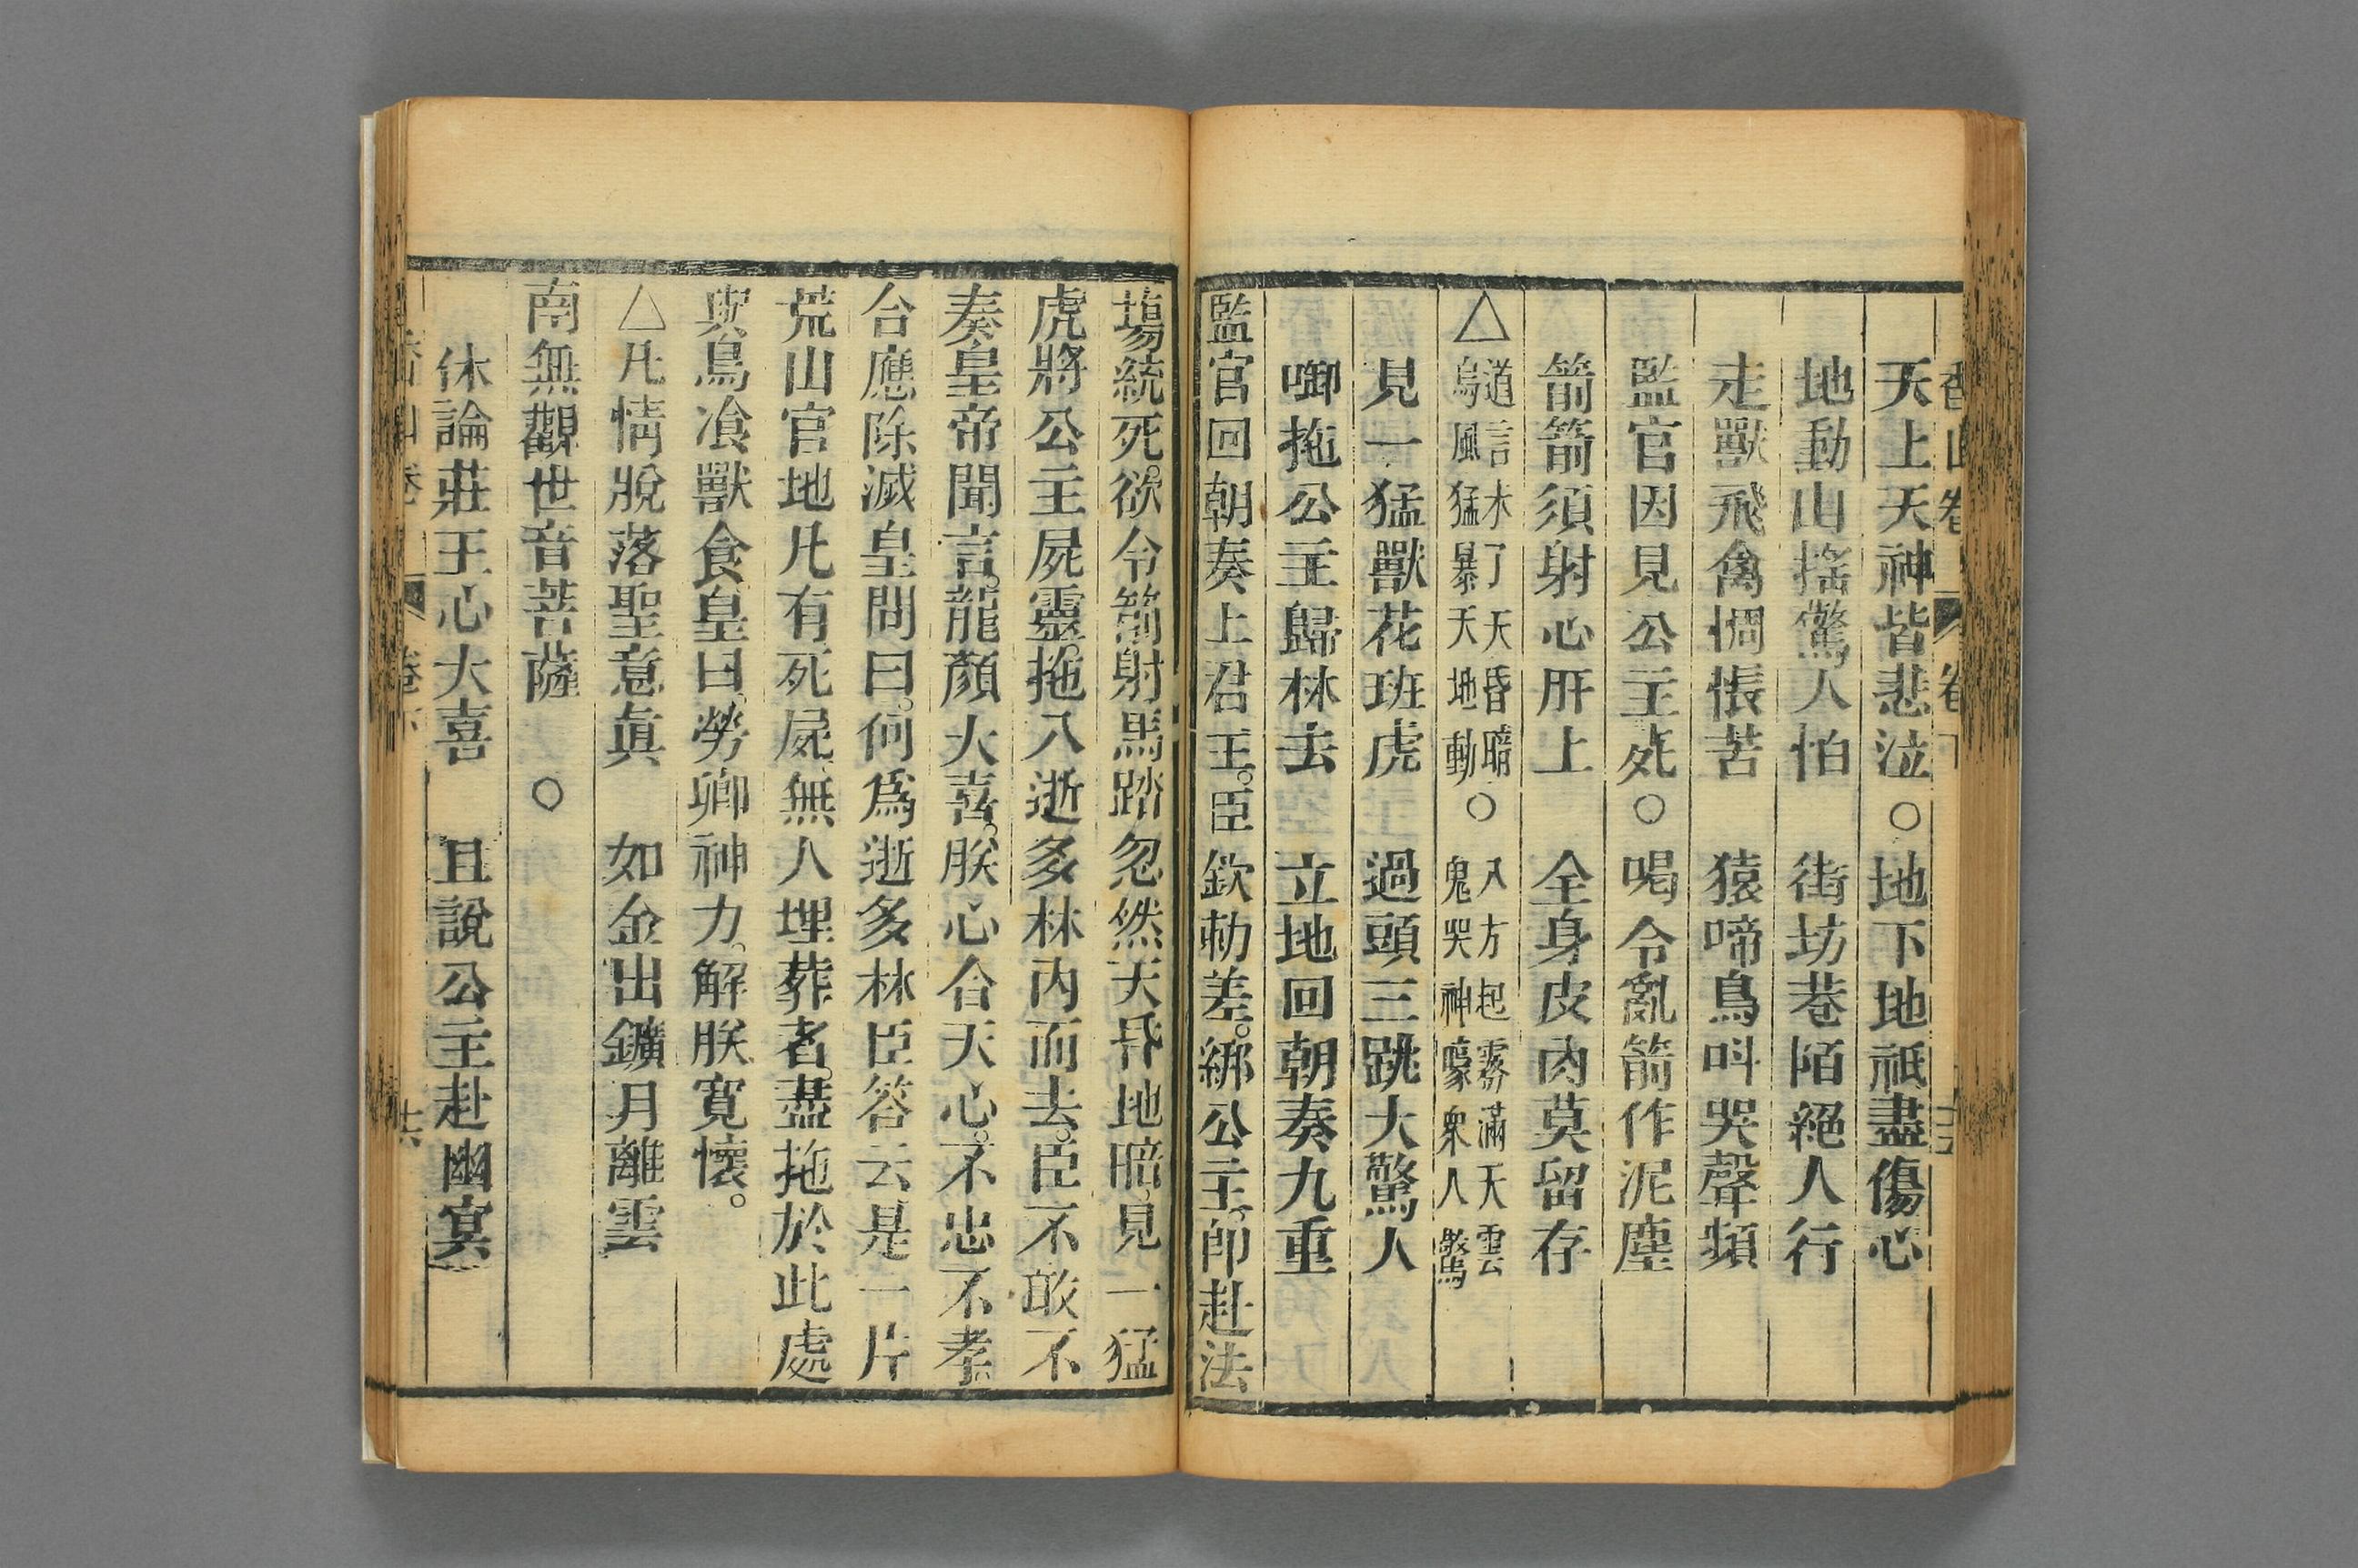 香山卷 卷下
天上天神皆悲泣○地下地祇盡傷心
地動山搖驚人怕　街坊巷陌絕人行
走獸飛禽惆悵苦　猿啼鳥呌哭聲頻
監官因見公主死○喝令亂箭作泥塵
箭箭須射心肝上　全身皮肉莫留存
△道言未了天昏暗○八方起霧滿天雲
烏風猛暴天地動　鬼哭神嚎衆人驚
見一猛獸花班虎　過頭三跳大驚人
啣拖公主歸林去　立地回朝奏九重
監官回朝奏上君王。臣欽勅差。綁公主。卽赴法
塲統死。欲令箭射馬踏忽然天昏地暗見一猛
虎將公主屍靈。拖入逝多林內而去。臣不敢不
奏皇帝聞言。龍顏大喜。朕心合天心。不忠不孝。
合應除滅皇問曰。何爲逝多林臣答云是一片
荒山官地凡有死屍無人埋葬者。盡拖於此處
與鳥飡獸食皇曰。勞卿神力。解朕寬懷。
△凡情脫落聖意眞　如金出鑛月離雲
南無觀世音菩薩　○
休論莊王心大喜　且說公主赴幽冥
香山卷 卷下 十六